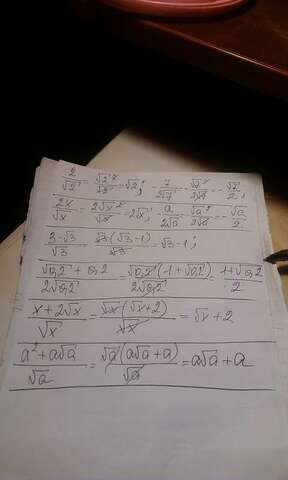 2/√2 = √2²/√2 = √2; -7/2√7 = -√7²/2√7 = -√7/2;
2x/√x = 2√x²/√x = 2√x; -a/2√a = -√a²/2√a = -√a/2
3-√3/√3 = √3(√3-1)/√3 = √3-1;
√0,2+0,2/2√0,2 = √0,2(1+√0,2)/2√0,2 = 1+√0,2/2
x+2√x/√x = √x(√x+2)/√x = √x+2
a²+a√a/√a = √a(a√a+a)/√a = a√a+a